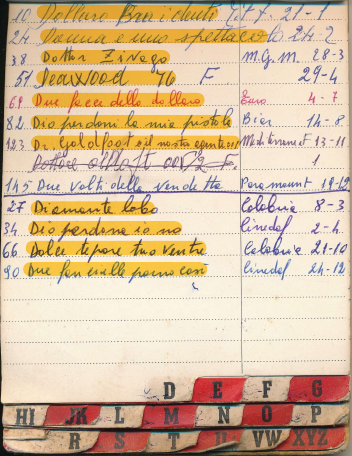 10 Dollaro Bucidento 21-1
24 Donna e uno spettacolo 24-2
38 Dottor Zivago M.G.M. 28-3
51 Deawood 76 F 29-4
69 Due facce della dollaro Euro 4-7
82 Dio perdoni la mia pistola 14-8
123 Dr. Goldfoot e il nostro agente 001 13-11
1
145 Due volti della vendetta Paramount 19-12
27 Diamante lobo Colobria 8-3
34 Dio perdona io no Cinedel 2-4
66 Dolce tepore tuo ventre Colobria 21-10
90 Due Cinedel 24-12
D E F G
HI JK L M N O P
R S T U VW XYZ